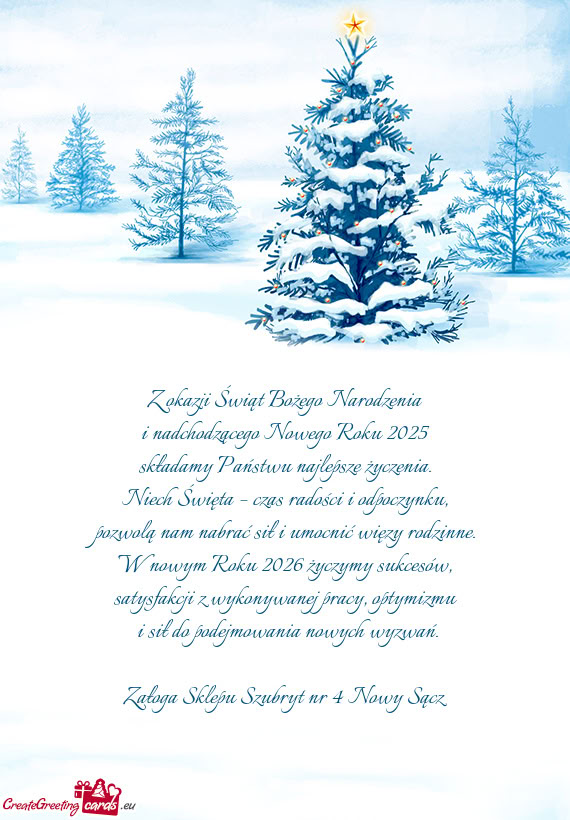 Z okazji Świąt Bożego Narodzenia
i nadchodzącego Nowego Roku 2025
składamy Państwu najlepsze życzenia.
Niech Święta – czas radości i odpoczynku,
pozwolą nam nabrać sił i umocnić więzy rodzinne.
W nowym Roku 2026 życzymy sukcesów,
satysfakcji z wykonywanej pracy, optymizmu
i sił do podejmowania nowych wyzwań.
Załoga Sklepu Szubryt nr 4 Nowy Sącz
CreateGreeting cards .eu